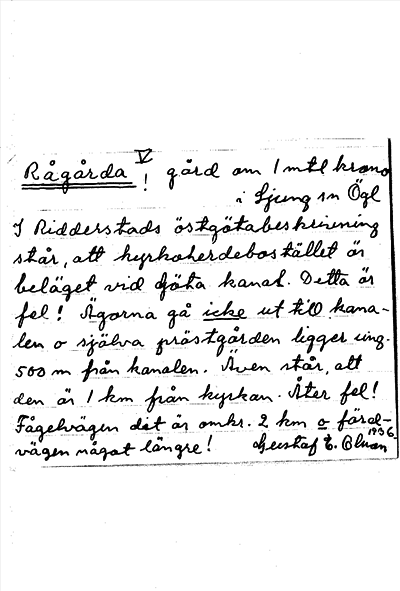 Rågårda V ! gård om 1 mtl krono
i Ljung sn Ögl
I Ridderstads östgötabeskrivning
står, att kyrkoherdebostället är
beläget vid Göta kanal. Detta är
fel! Ägorna gå icke ut till kana-
len o själva prästgården ligger ung.
500 m från kanalen. Även står, att
den är 1 km från kyrkan. Åter fel!
Fågelvägen dit är omkr. 2 km o färd-
vägen något längre! Gustaf E.
1936.